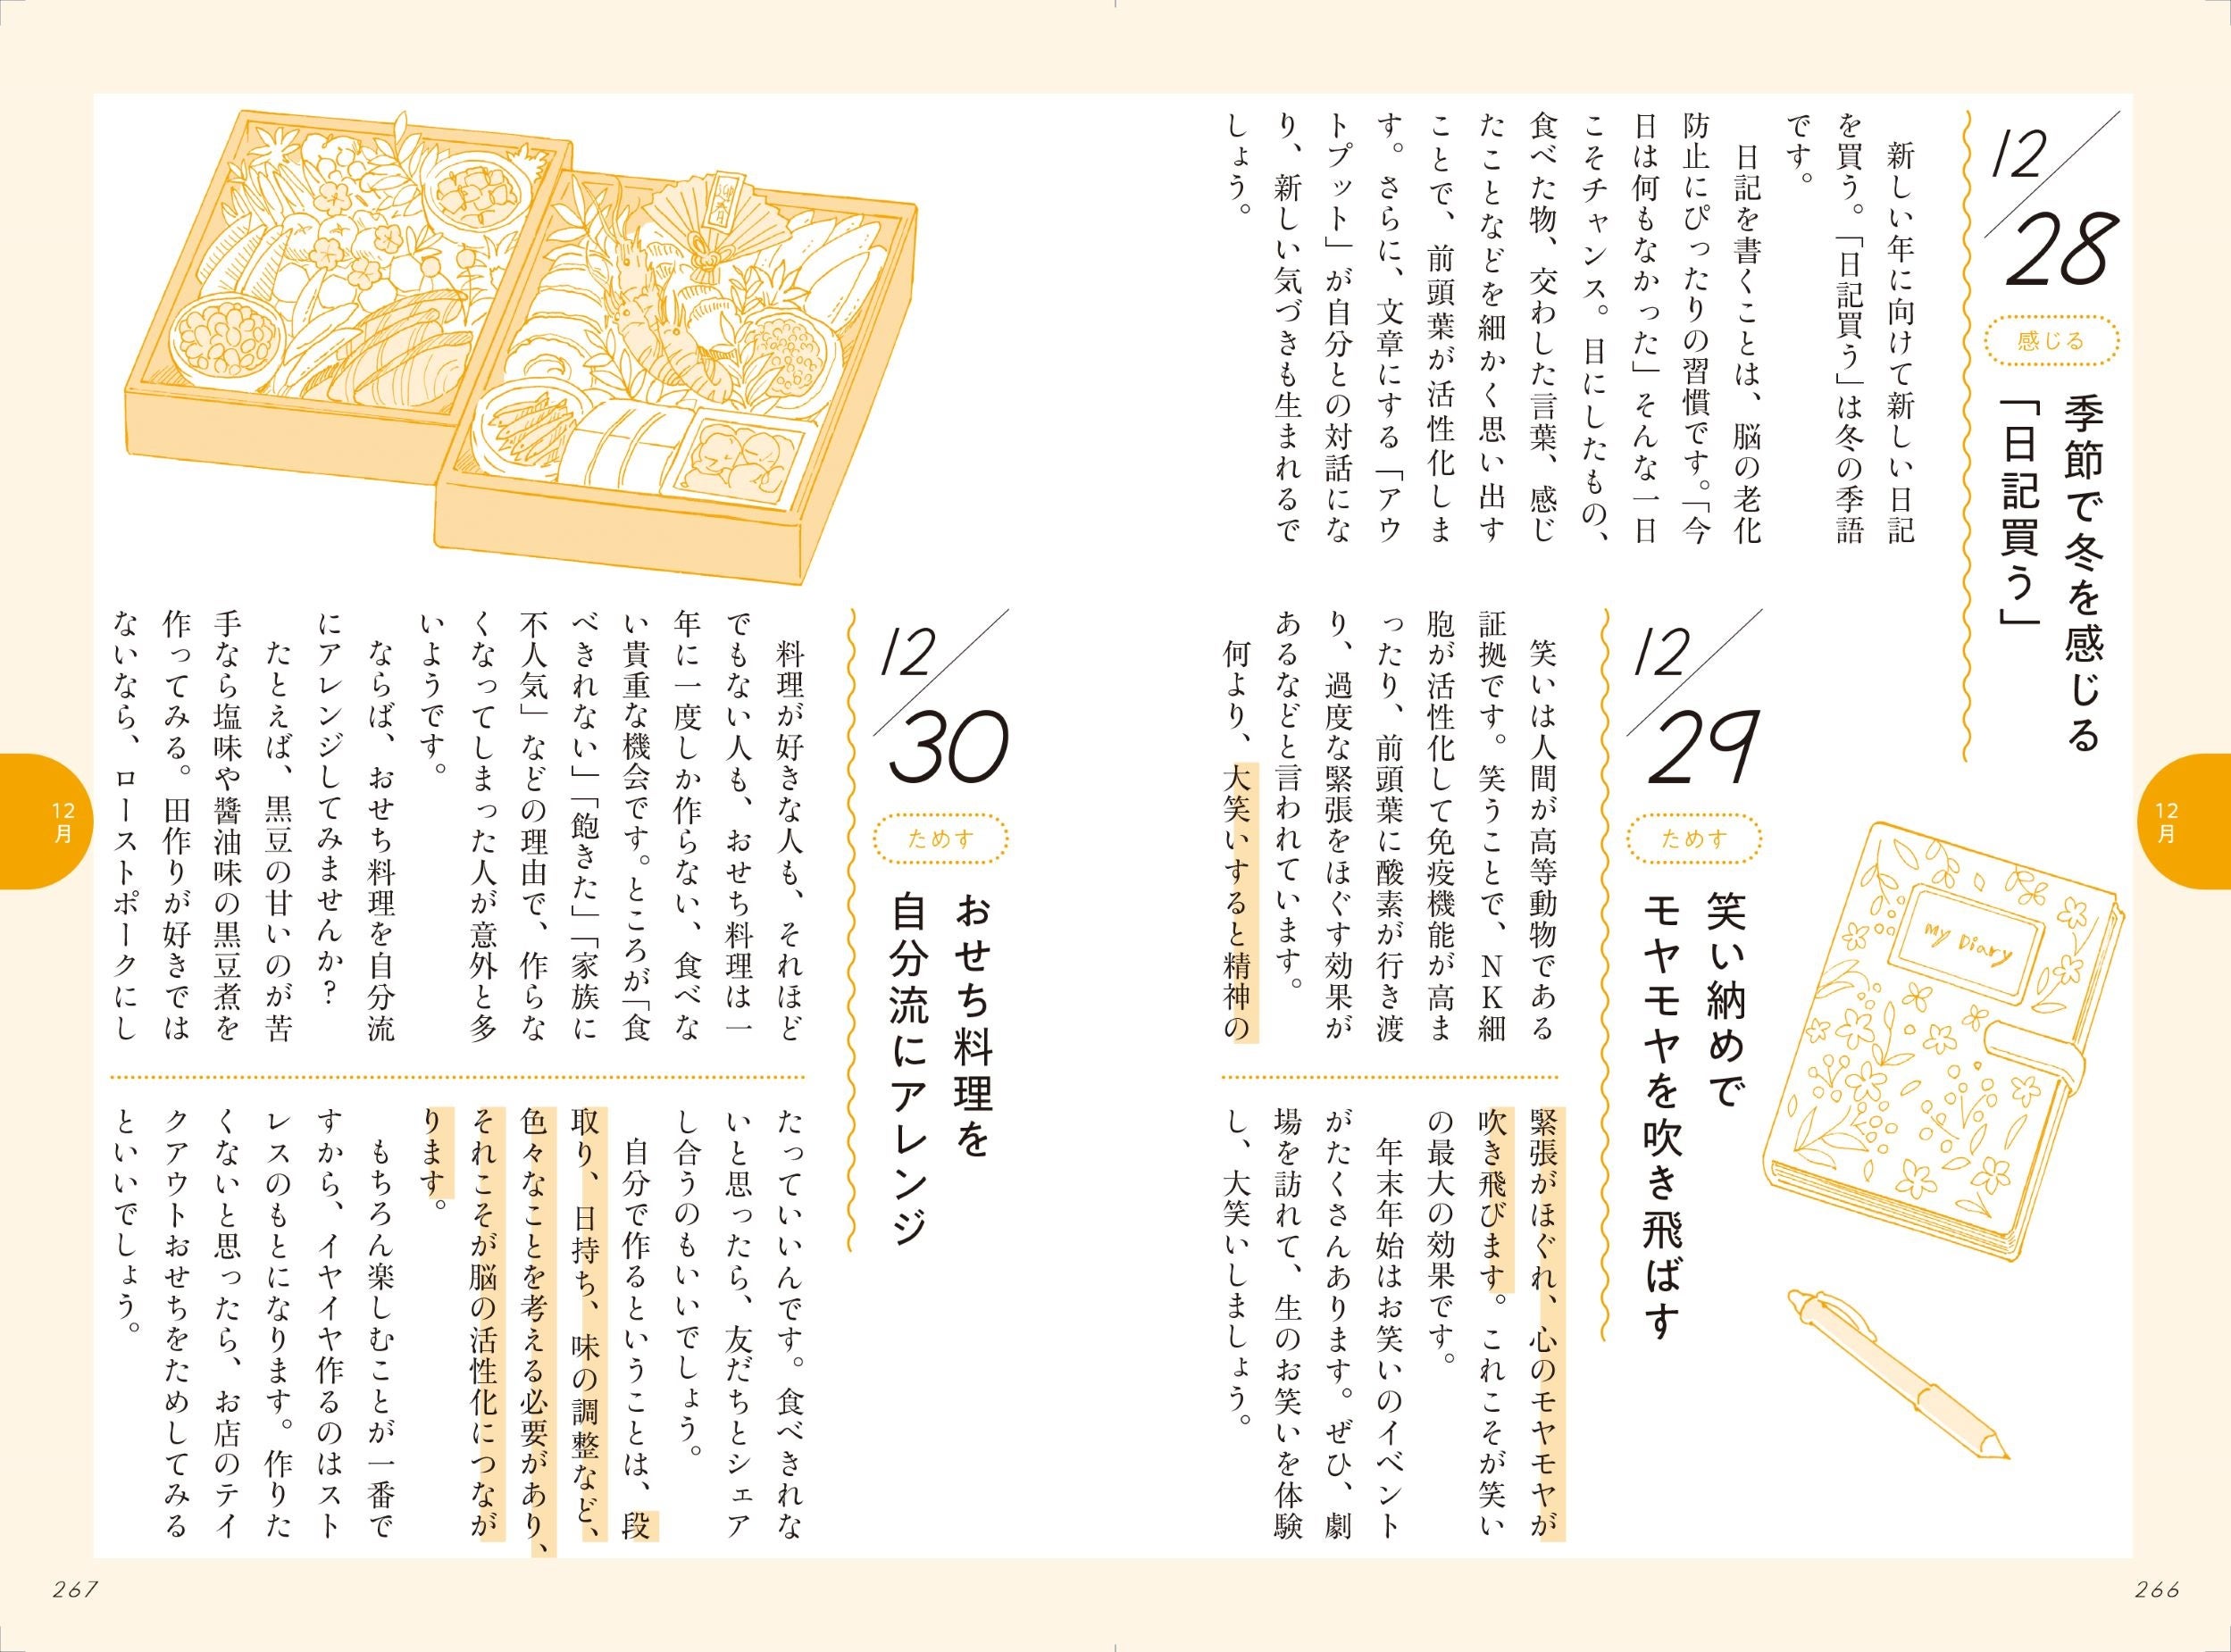 12/28
感じる
季節で冬を感じる
「日記買う」
新しい年に向けて新しい日記
を買う。「日記買う」は冬の季語
です。
日記を書くことは、脳の老化
防止にぴったりの習慣です。「今
日は何もなかった」そんな一日
こそチャンス。目にしたもの、
食べた物、交わした言葉、感じ
たことなどを細かく思い出す
ことで、前頭葉が活性化しま
す。さらに、文章にする「アウ
トプット」が自分との対話にな
り、新しい気づきも生まれるで
しょう。
My Diary
12/29
ためす
笑い納めで
モヤモヤを吹き飛ばす
笑いは人間が高等動物である
証拠です。笑うことで、NK細
胞が活性化して免疫機能が高ま
ったり、前頭葉に酸素が行き渡
り、過度な緊張をほぐす効果が
あるなどと言われています。
何より、大笑いすると精神の
緊張がほぐれ、心のモヤモヤが
吹き飛びます。これこそが笑い
の最大の効果です。
年末年始はお笑いのイベント
がたくさんあります。ぜひ、劇
場を訪れて、生のお笑いを体験
し、大笑いしましょう。
12月
266
12/30
ためす
おせち料理を
自分流にアレンジ
料理が好きな人も、それほど
でもない人も、おせち料理は一
年に一度しか作らない、食べな
い貴重な機会です。ところが「食
べきれない」「飽きた」「家族に
不人気」などの理由で、作らな
くなってしまった人が意外と多
いようです。
ならば、おせち料理を自分流
にアレンジしてみませんか?
たとえば、黒豆の甘いのが苦
手なら塩味や醬油味の黒豆煮を
作ってみる。田作りが好きでは
ないなら、ローストポークにし
たっていいんです。食べきれな
いと思ったら、友だちとシェア
し合うのもいいでしょう。
自分で作るということは、段
取り、日持ち、味の調整など、
色々なことを考える必要があり、
それこそが脳の活性化につなが
ります。
もちろん楽しむことが一番で
すから、イヤイヤ作るのはスト
レスのもとになります。作りた
くないと思ったら、お店のテイ
クアウトおせちをためしてみる
といいでしょう。
12月
267